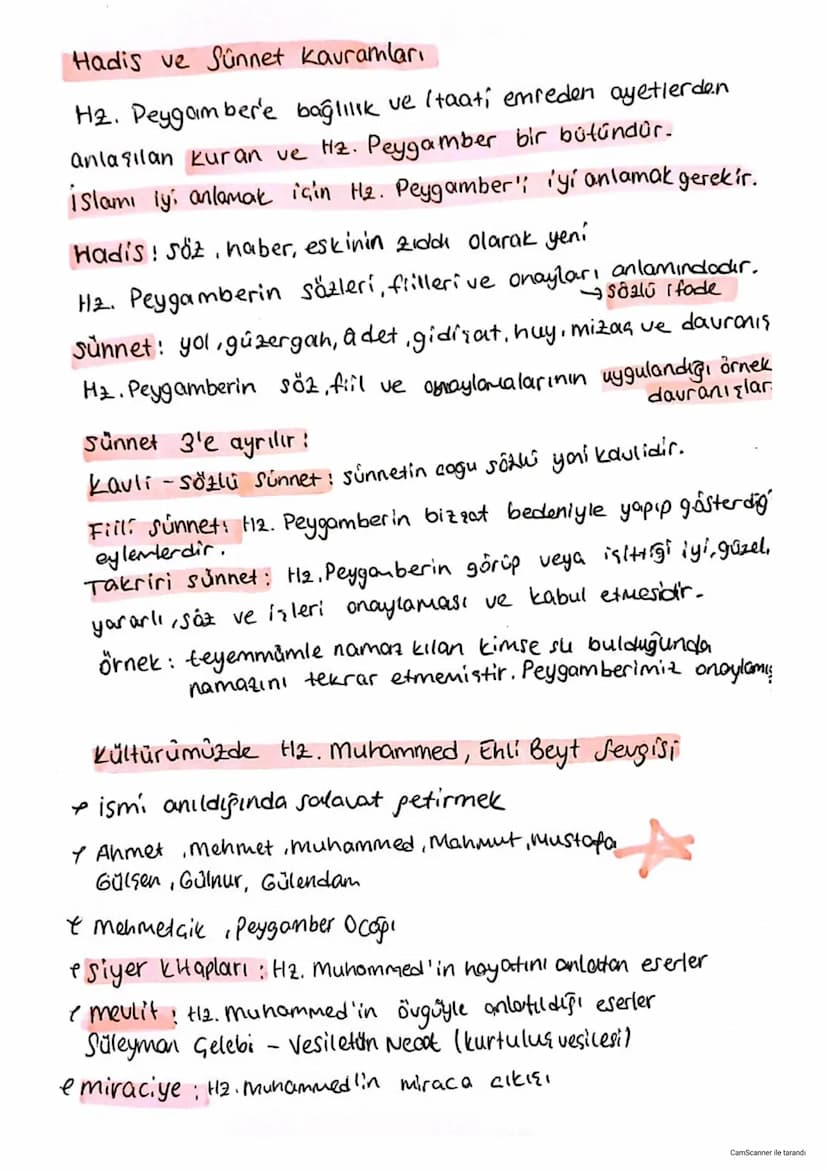 Hadis ve Sünnet Kavramları
Hz. Peygamber'e bağlılık ve itaati emreden ayetlerden
anlaşılan Kuran ve Hz. Peygamber bir bütündür.
İslamı iyi anlamak için Hz. Peygamber'i iyi anlamak gerekir.
Hadis: söz, haber, eskinin zıddı olarak yeni
Hz. Peygamberin sözleri, fiilleri ve onayları anlamındadır.
→ sözlü ifade
Sünnet: yol, güzergah, âdet, gidişat, huy, mizaç ve davranış
Hz. Peygamberin söz, fiil ve onaylamalarının uygulandığı örnek
davranışlar
Sünnet 3'e ayrılır:
Kavli - sözlü sünnet: sünnetin çoğu sözlü yani kavlidir.
Fiili sünnet: Hz. Peygamberin bizzat bedeniyle yapıp gösterdiğ
eylemlerdir.
Takriri sünnet: Hz. Peygamberin görüp veya işittiği iyi, güzel,
yararlı, söz ve işleri onaylaması ve kabul etmesidir.
örnek: teyemmümle namaz kılan kimse su bulduğunda
namazını tekrar etmemiştir. Peygamberimiz onaylamış
Kültürümüzde Hz. Muhammed, Ehli Beyt Sevgisi
ismi anıldığında salavat getirmek
Ahmet, Mehmet, Muhammed, Mahmut, Mustafa
Gülşen, Gülnur, Gülendam
Mehmetçik, Peygamber Ocağı
Siyer Kitapları: Hz. Muhammed'in hayatını anlatan eserler
mevlit: Hz. Muhammed'in övgüyle anlatıldığı eserler
Süleyman Çelebi - Vesiletün Necat (kurtuluş vesilesi)
miraciye: Hz. Muhammed'in miraca çıkışı
CamScanner ile tarandı